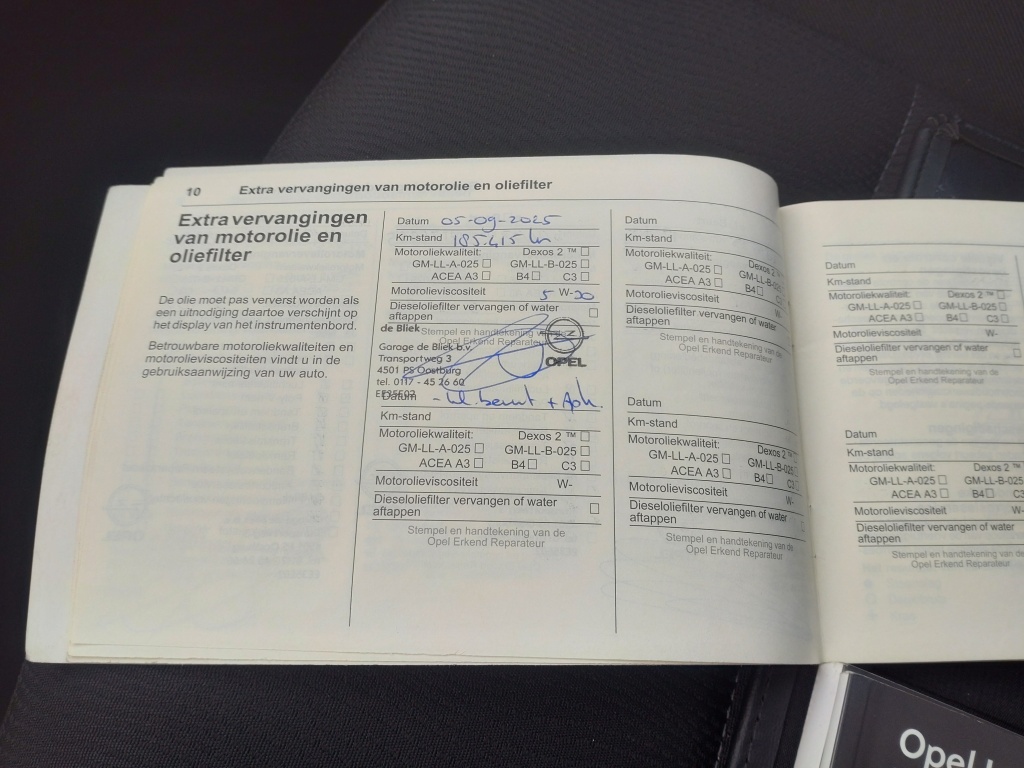 10 Extra vervangingen van motorolie en oliefilter
Extra vervangingen
van motorolie en
oliefilter
De olie moet pas ververst worden als
een uitnodiging daartoe verschijnt op
het display van het instrumentenbord.
Betrouwbare motoroliekwaliteiten en
motorolieviscositeiten vindt u in de
gebruiksaanwijzing van uw auto.
Datum 05-09-2025
Km-stand 185.415 km
Motoroliekwaliteit: Dexos 2 ™ □
GM-LL-A-025 □ GM-LL-B-025 □
ACEA A3 □ B4 □ C3 □
Motorolieviscositeit 5 W-30
Dieseloliefilter vervangen of water □
aftappen
Stempel en handtekening van de
Opel Erkend Reparateur
de Bliek
Garage de Bliek b.v.
Transportweg 3
4501 PS Oostburg
tel. 0117 - 45 26 60
OPEL
Datum
Km-stand
Motoroliekwaliteit: Dexos 2 ™ □
GM-LL-A-025 □ GM-LL-B-025 □
ACEA A3 □ B4 □ C3 □
Motorolieviscositeit W-
Dieseloliefilter vervangen of water □
aftappen
Stempel en handtekening van de
Opel Erkend Reparateur
Datum
Km-stand
Motoroliekwaliteit: Dexos 2
GM-LL-A-025 □ GM-LL-B-025
ACEA A3 □ B4 □ C3
Motorolieviscositeit W-
Dieseloliefilter vervangen of water
aftappen
Stempel en handtekening van de
Opel Erkend Reparateur
Datum
Km-stand
Motoroliekwaliteit: Dexos 2 ™
GM-LL-A-025 □ GM-LL-B-025
ACEA A3 □ B4 □ C3
Motorolieviscositeit W-
Dieseloliefilter vervangen of water
aftappen
Stempel en handtekening van de
Opel Erkend Reparateur
Datum
Km-stand
Motoroliekwaliteit: Dexos 2 ™ □
GM-LL-A-025 □ GM-LL-B-025 □
ACEA A3 □ B4 □ C3 □
Motorolieviscositeit W-
Dieseloliefilter vervangen of water □
aftappen
Stempel en handtekening van de
Opel Erkend Reparateur
Datum
Km-stand
Motoroliekwaliteit: Dexos 2
GM-LL-A-025 □ GM-LL-B-025
ACEA A3 □ B4 □ C3
Motorolieviscositeit W-
Dieseloliefilter vervangen of water
aftappen
Stempel en handtekening van de
Opel Erkend Reparateur
Opel